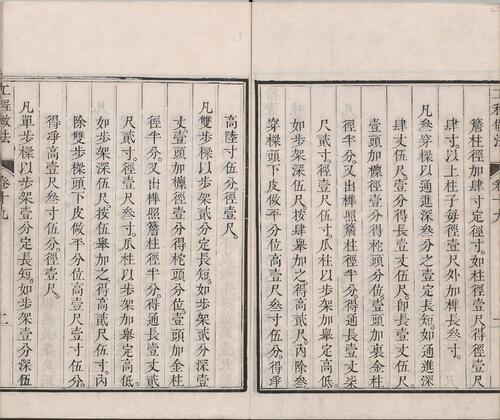 簷柱徑加肆寸定徑寸。如柱徑壹尺
肆寸。以上柱子每徑壹尺外加榫長叁寸。
凡叁穿樑以通進深叁分之壹定長短。如通進深
肆丈伍尺。壹分得長壹丈伍尺。卽長壹丈伍尺。
壹頭加檁徑壹分得柁頭分位。壹頭加裏金柱
徑半分。又出榫照簷柱徑半分。得通長壹丈柒
尺貳寸。徑壹尺伍寸。瓜柱以步架加舉定高低。
如步架深伍尺。按肆舉加之得高貳尺。內除叁
穿樑頭下皮做平分位高壹尺叁寸伍分。得淨
高陸寸伍分。徑壹尺。
凡雙步樑以步架貳分定長短。如步架貳分深壹
丈。壹頭加檁徑壹分得柁頭分位。壹頭加金柱
徑半分。又出榫照簷柱徑半分。得通長壹丈貳
尺貳寸。徑壹尺叁寸。瓜柱以步架加舉定高低。
如步架深伍尺。按伍舉加之得高貳尺伍寸。內
除雙步樑頭下皮做平分位高壹尺壹寸伍分。
得淨高壹尺叁寸伍分。徑壹尺。
凡單步樑以步架壹分定長短。如步架壹分深伍
工程做法
卷十九
二